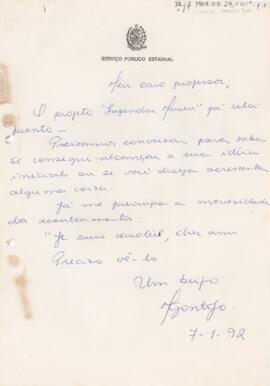 SERVIÇO PÚBLICO ESTADUAL
Meu caro professor,
O projeto "Fazendas Museu" já está
pronto —
Precisamos conversar para saber
se consegui alcançar a sua idéia
inicial ou se você deseja acrescentar
alguma coisa.
Já me preocupa a morosidade
dos acontecimentos.
"Je suis desolée", cher ami.
Preciso vê-lo.
Um beijo
7-1-92